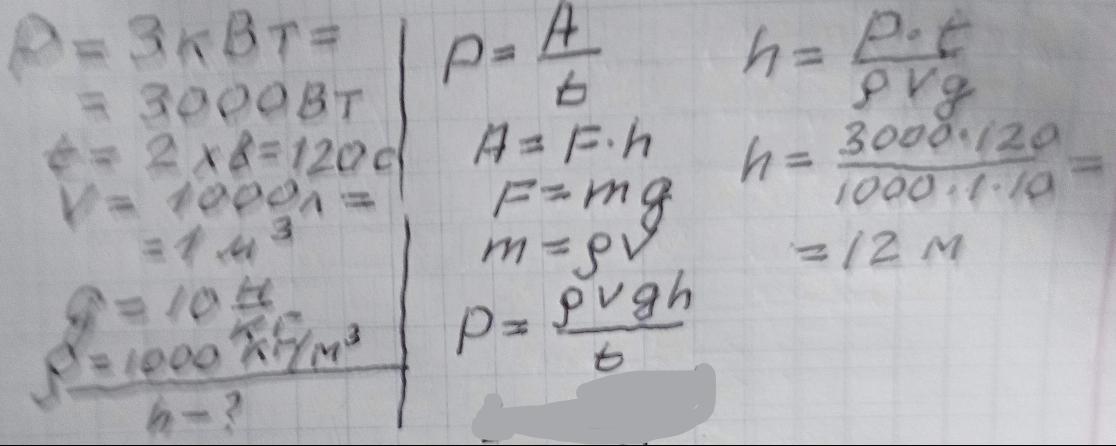 P = 3 кВт =
= 3000 Вт
t = 2 хв = 120 с
V = 1000 л =
= 1 м³
g = 10 Н/кг
ρ = 1000 кг/м³
h - ?
P = A/t
A = F·h
F = mg
m = ρV
P = ρVgh/t
h = P·t/ρVg
h = 3000·120/1000·1·10 =
= 12 м